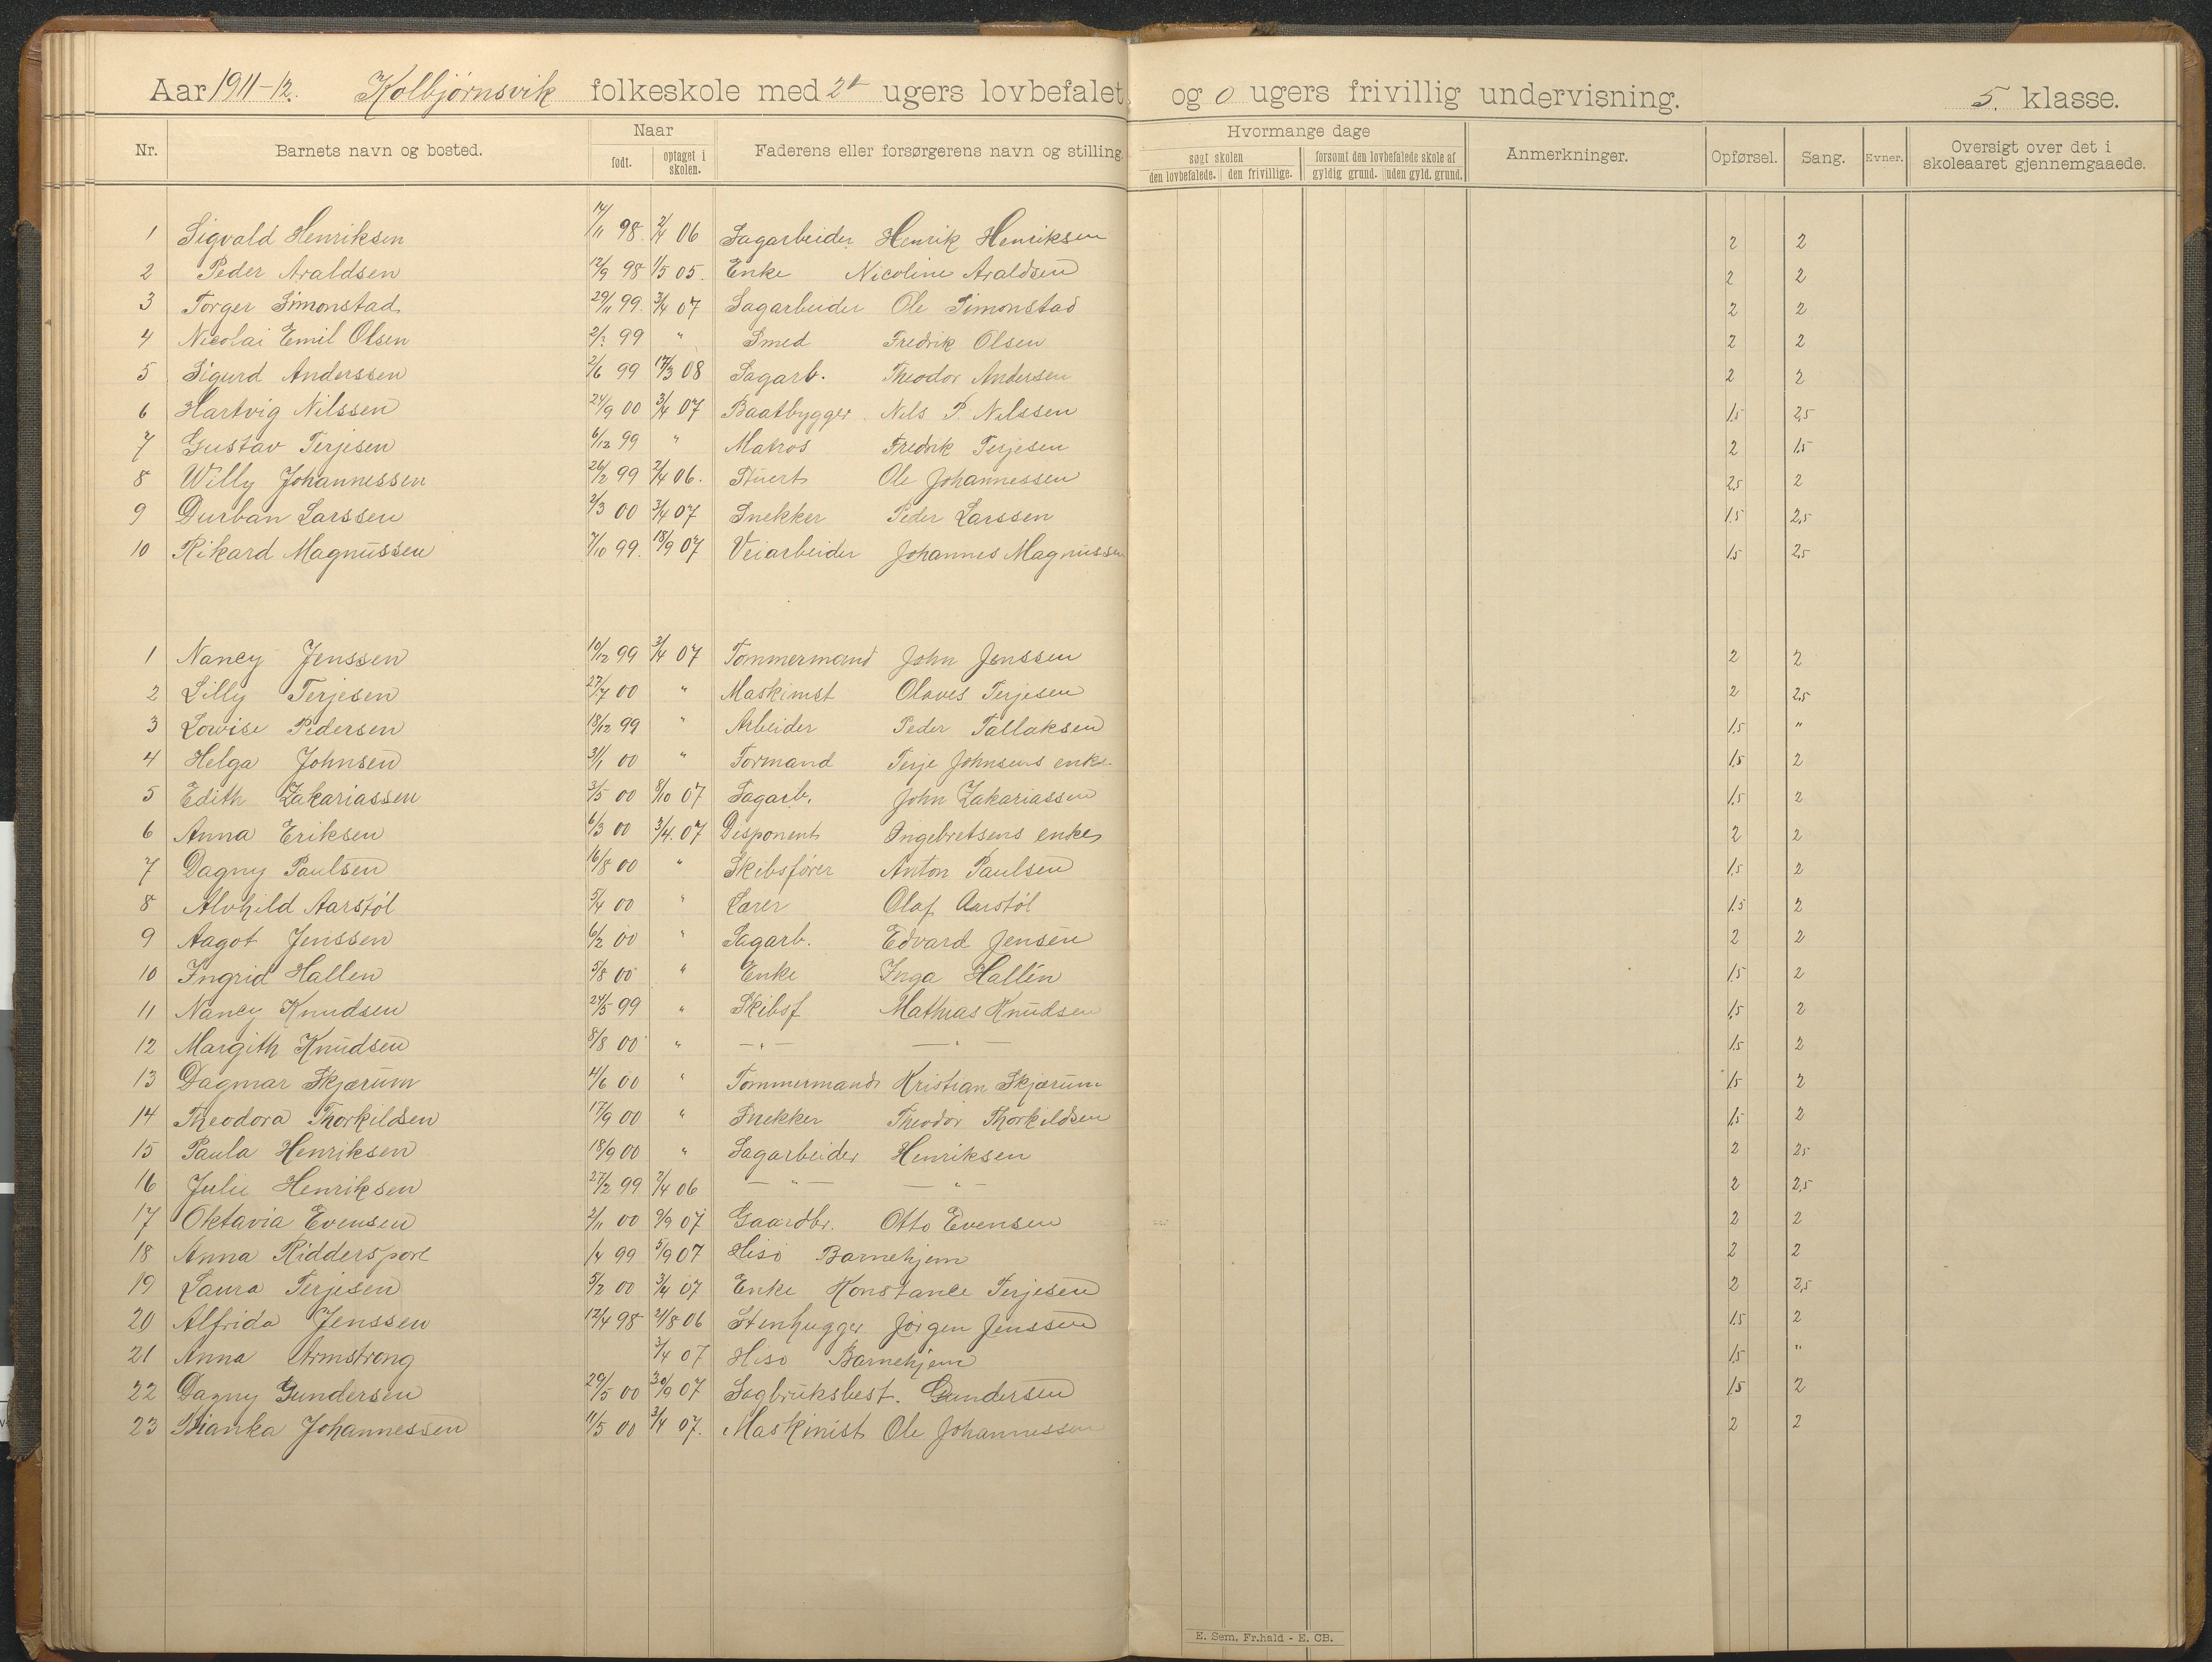 Aar 1911-12. Kolbjørnsvik folkeskole med 2 ugers lovbefalet og 0 ugers frivillig undervisning. 5. klasse.
Nr. Barnets navn og bosted. Naar født. optaget i skolen. Faderens eller forsørgerens navn og stilling. Hvormange dage søgt skolen den lovbefalede. den frivillige. forsømt den lovbefalede skole af gyldig grund. uden gyld. grund. Anmerkninger. Opførsel. Sang. Evner. Oversigt over det i skoleaaret gjennemgaaede.
1 Sigvald Henriksen 14/11 98 2/4 06 Sagarbeider Henrik Henriksen 2 2
2 Peder Araldsen 12/9 98 1/5 05. Enke Nicoline Araldsen 2 2
3 Torger Simonstad 29/11 99. 3/4 07 Sagarbeider Ole Simonstad 2 2
4 Nicolai Emil Olsen 99 " Smed Fredrik Olsen 2 2
5 Sigurd Anderssen 2/6 99 17/3 08 Sagarb. Theodor Andersen 2 2
6 Hartvig Nilssen 24/9 00 3/4 07 Baatbygger Nils P. Nilssen 1,5 2,5
7 Gustav Terjesen 6/12 99 " Matros Fredrik Terjesen 2 1,5
8 Willy Johannessen 26/2 99 2/4 06. Stuert Ole Johannessen 2,5 2
9 Durban Larssen 2/3 00 3/4 07 Snekker Peder Larssen 1,5 2,5
10 Rikard Magnussen 7/10 99. 18/9 07 Veiarbeider Johannes Magnussen 1,5 2,5
1 Nancy Jenssen 10/12 99 3/4 07 Tømmermand John Jenssen 2 2
2 Lilly Terjesen 27/7 00 " Maskinist Olaves Terjesen 2 2,5
3 Lovise Pedersen 18/12 99 " Arbeider Peder Tallaksen 1,5 "
4 Helga Johnsen 31/1 00 " Formand Terje Johnsens enke 1,5 2
5 Edith Zakariassen 3/5 00 8/10 07 Sagarb. John Zakariassen 1,5 2
6 Anna Eriksen 6/3 00 3/4. 07 Disponent Ingebretsens enke 2 2
7 Dagny Paulsen 16/8 00 " Skibsfører Anton Paulsen 1,5 2
8 Alvhild Aarstøl 5/4 00 " Lærer Olaf Aarstøl 1,5 2
9 Aagot Jenssen 6/2 00 " Sagarb. Edvard Jensen 2 2
10 Ingrid Hallen 5/8 00 " Enke Inga Hallén 1,5 2
11 Nancy Knudsen 24/5 99 " Skibsf Mathias Knudsen 1,5 2
12 Margith Knudsen 8/8 00 " — " — — " — 1,5 2
13 Dagmar Skjærum 4/6 00 " Tømmermand Kristian Skjærum 1,5 2
14 Theodora Thorkildsen 17/9 00 " Snekker Theodor Thorkildsen 1,5 2
15 Paula Henriksen 18/9 00 " Sagarbeider Henriksen 2 2,5
16 Julie Henriksen 27/2 99 2/4 06 — " — — " — 2 2,5
17 Oktavia Evensen 2/11 00 9/9 07 Gaardbr. Otto Evensen 2 2
18 Anna Ridderspore 1/4 99 5/9 07 Hisø Barnehjem 2 2
19 Laura Terjesen 5/2 00 3/4 07 Enke Konstance Terjesen 2 2,5
20 Alfrida Jenssen 12/4 98 21/8 06 Stenhugger Jørgen Jenssen 1,5 2
21 Anna Armstrong 3/4 07 Hisø Barnehjem 1,5 "
22 Dagny Gundersen 29/5 00 30/9 07 Sagbruksbest. Gundersen 1,5 2
23 Bianka Johannessen 11/5 00 3/4 07. Maskinist Ole Johannessen 2 2
E. Sem, Fr.hald - E. CB.